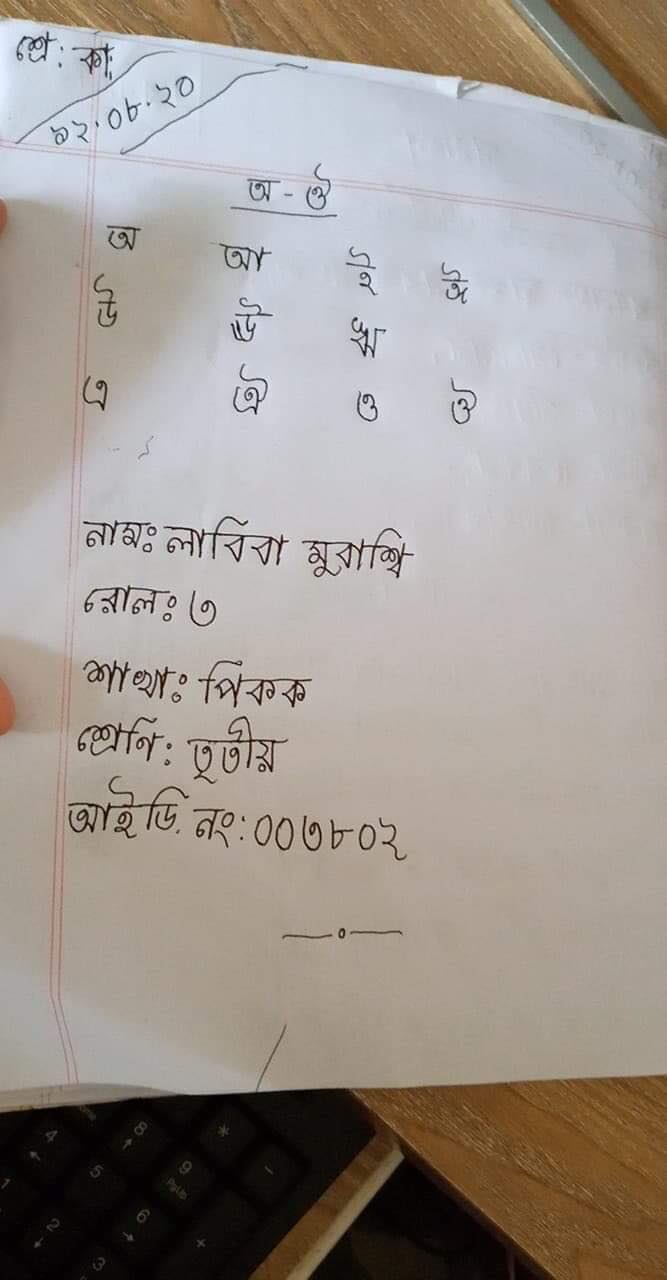 শ্রে: কা:
১২.০৮.২০
অ - ঔ
অ আ ই ঈ
উ ঊ ঋ
এ ঐ ও ঔ
নাম: লাবিবা মুবাশ্বি
রোল: ৩
শাখা: পিকক
শ্রেণি: তৃতীয়
আইডি. নং: ০০৩৮০২
4 8 *
5 9 PgUp -
1 6 +
2 3